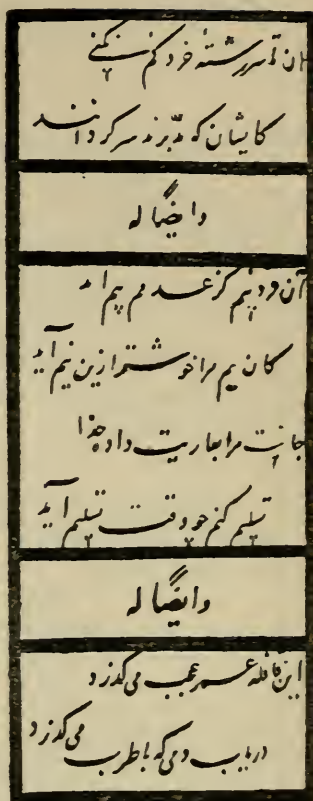 هان تا سررشتهٔ خرد کم نکنے
کایشان که مدبرند سر کردانند
وایضاً له
آن مرد نیم کز عدمم بیم آید
کان نیم مرا خوشتر ازین نیم آید
جانیست مرا بعاریت داده خدا
تسلیم کنم چو وقت تسلیم آید
وایضاً له
این قافله عمر عجب می کذرد
دریاب دمی که با طرب می کذرد